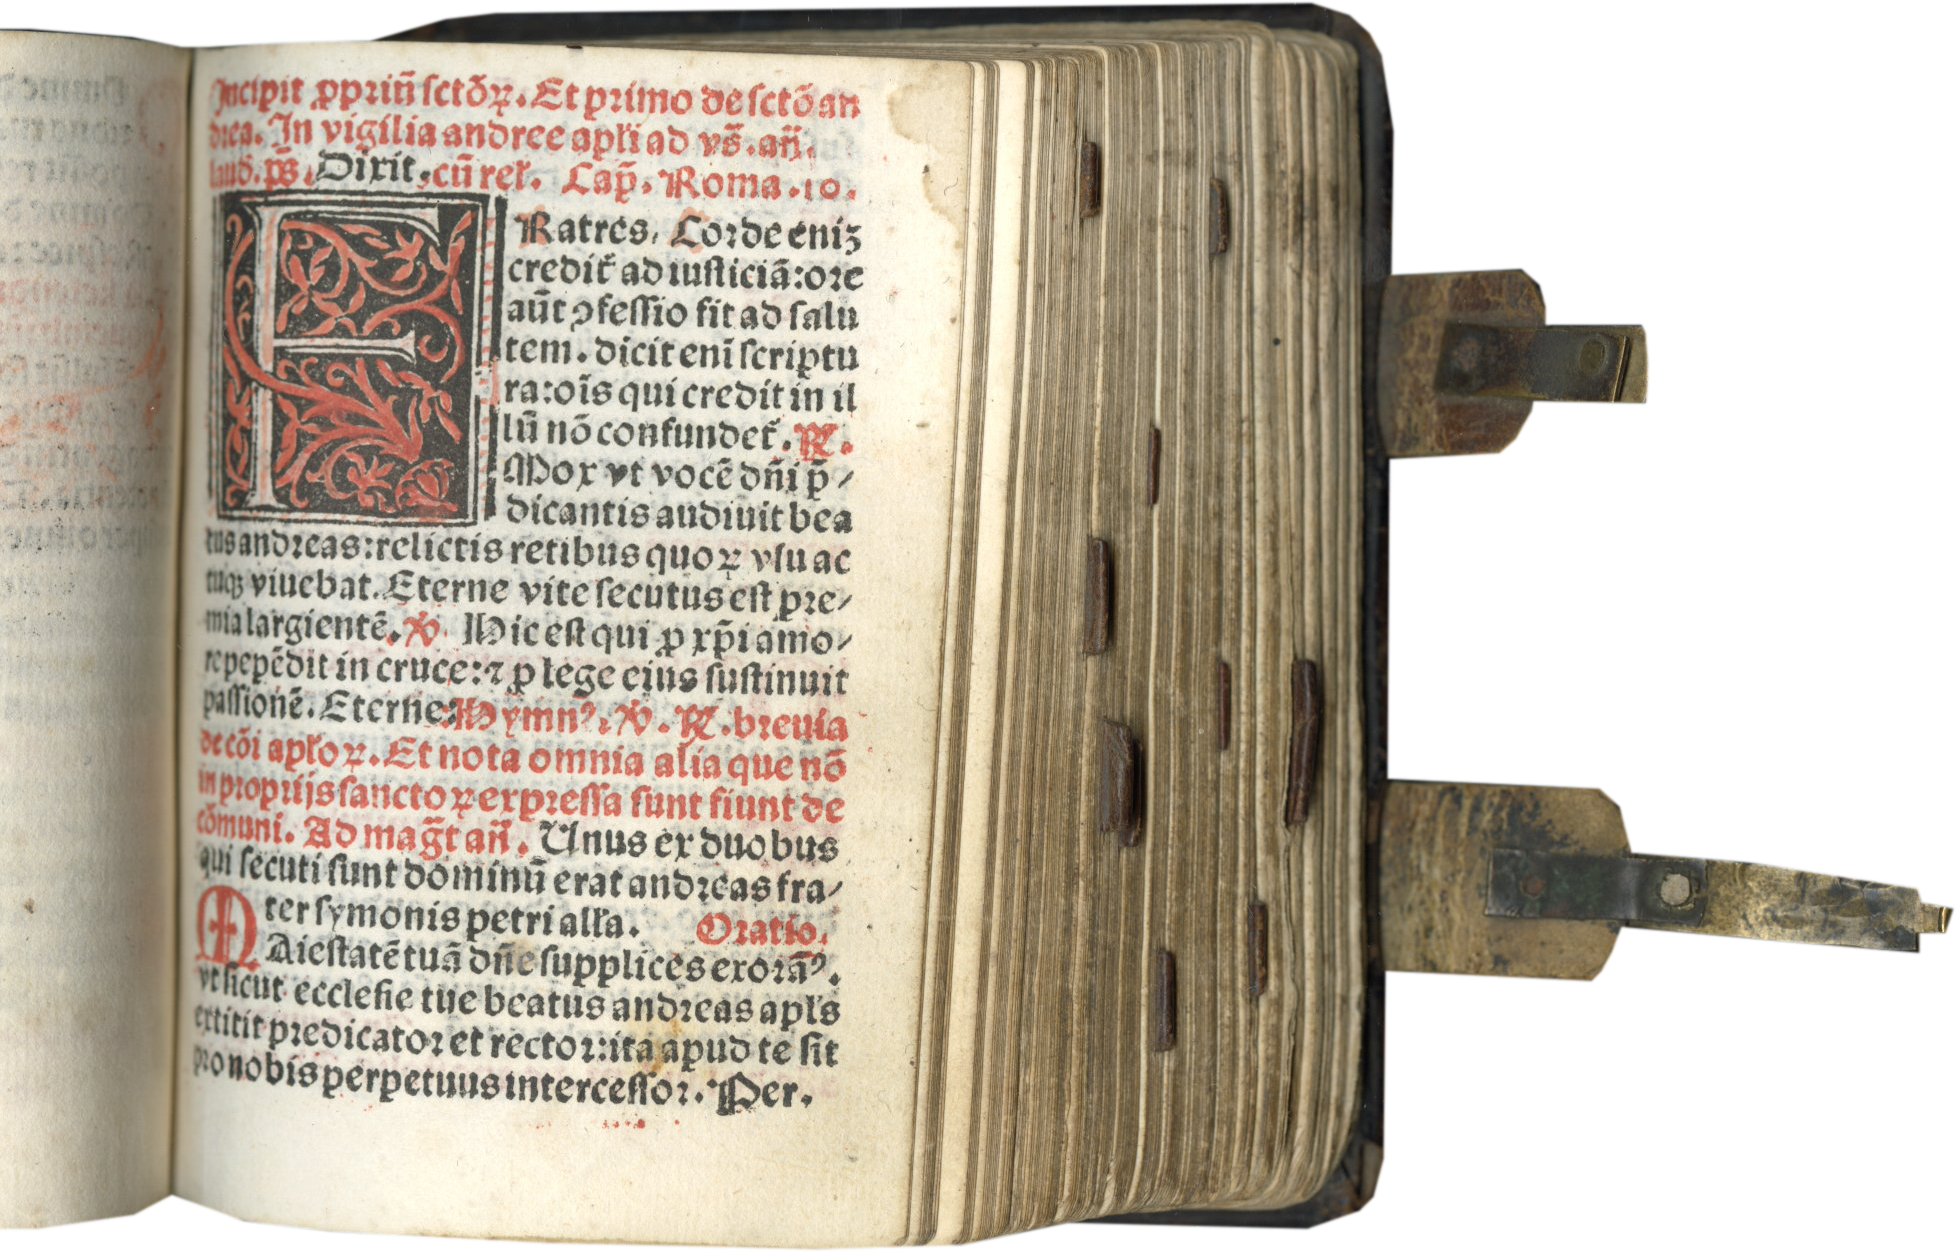 Incipit ꝓpriū sctōꝝ. Et primo de sctō an
drea. In vigilia andree apłi ad vs̄. añ.
laud. ps̄. Dixit, cū reł. Cap̄. Roma. 10.
FRatres, Corde eniʒ
credit᷑ ad iusticiā: ore
aūt ꝯfessio fit ad salu
tem. dicit enī scriptu
ra: oīs qui credit in il
lū nō confundet᷑. ℟.
Mox vt vocē dñi p̄⸗
dicantis audiuit bea
tus andreas: relictis retibus quoꝝ vsu ac
tuqʒ viuebat. Eterne vite secutus est pre⸗
mia largientē. ℣ Hic est qui ꝓ xp̄i amo⸗
re pepēdit in cruce: ⁊ ꝓ lege eius sustinuit
passionē. Eterne. Hymnꝰ, ℣. ℟. breuia
de cōi apłoꝝ. Et nota omnia alia que nō
in proprijs sanctoꝝ expressa sunt fiunt de
cōmuni. Ad mag̃t añ. Unus ex duobus
qui secuti sunt dominū erat andreas fra⸗
ter symonis petri alła. Oratio.
MAiestatē tuā dñe supplices exoramꝰ.
vt sicut ecclesie tue beatus andreas apl's
extitit predicator et rector: ita apud te sit
pro nobis perpetuus intercessor. Per.